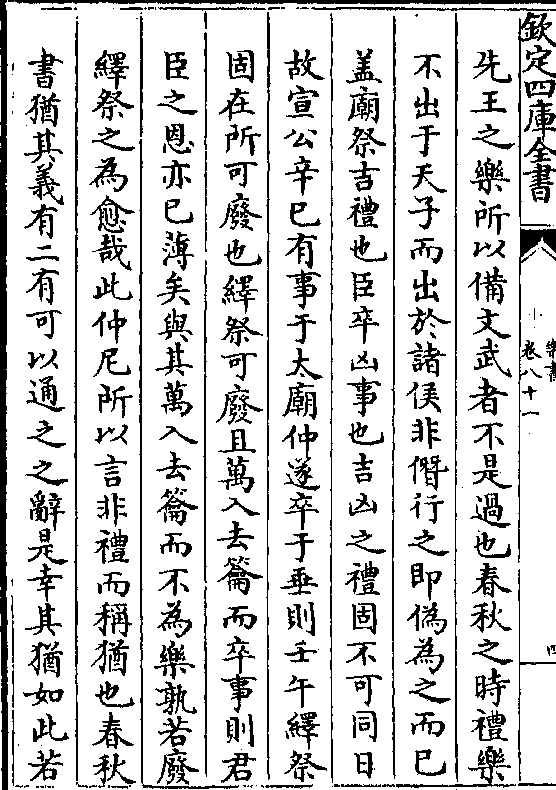 欽定四庫全書
樂書
卷八十一
四
先王之樂所以備文武者不是過也春秋之時禮樂
不出于天子而出於諸侯非僭行之即偽為之而已
盖廟祭吉禮也臣卒凶事也吉凶之禮固不可同日
故宣公辛巳有事于大廟仲遂卒于垂則壬午繹祭
固在所可廢也繹祭可廢且萬入去籥而卒事則君
臣之恩亦已薄矣與其萬入去籥而不為樂孰若廢
繹祭之為愈哉此仲尼所以言非禮而稱猶也春秋
書猶其義有二有可以通之之辭是幸其猶如此若